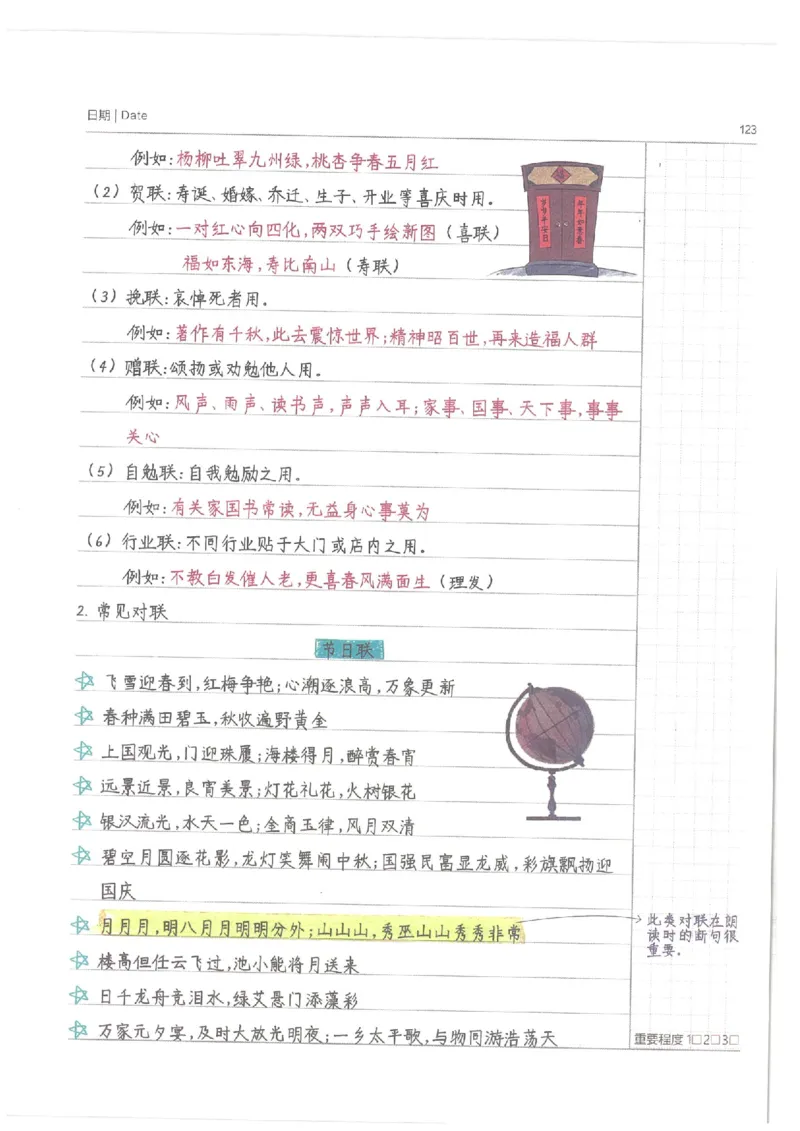 日期 | Date
123
例如:杨柳吐翠九州绿,桃杏争春五月红
(2) 贺联:寿诞、婚嫁、乔迁、生子、开业等喜庆时用。
例如:一对红心向四化,两双巧手绘新图(喜联)
福如东海,寿比南山(寿联)
(3) 挽联:哀悼死者用。
例如:著作有千秋,此去震惊世界;精神昭百世,再来造福人群
(4) 赠联:颂扬或劝勉他人用。
例如:风声、雨声、读书声,声声入耳;家事、国事、天下事,事事
关心
(5) 自勉联:自我勉励之用。
例如:有关家国书常读,无益身心事莫为
(6) 行业联:不同行业贴于大门或店内之用。
例如:不教白发催人老,更喜春风满面生(理发)
2. 常见对联
节日联
飞雪迎春到,红梅争艳;心潮逐浪高,万象更新
春种满田碧玉,秋收遍野黄金
上国观光,门迎珠履;海楼得月,醉赏春宵
远景近景,良宵美景;灯花礼花,火树银花
银汉流光,水天一色;金商玉律,风月双清
碧空月圆逐花影,龙灯笑舞闹中秋;国强民富显龙威,彩旗飘扬迎
国庆
月月月,明八月月明明分外;山山山,秀巫山山秀秀非常
此类对联在朗
读时的断句很
重要。
楼高但任云飞过,池小能将月送来
日千龙舟竞泪水,绿艾悬门添藻彩
万家元夕宴,及时大放光明夜;一乡太平歌,与物同游浩荡天
重要程度 1□2□3□